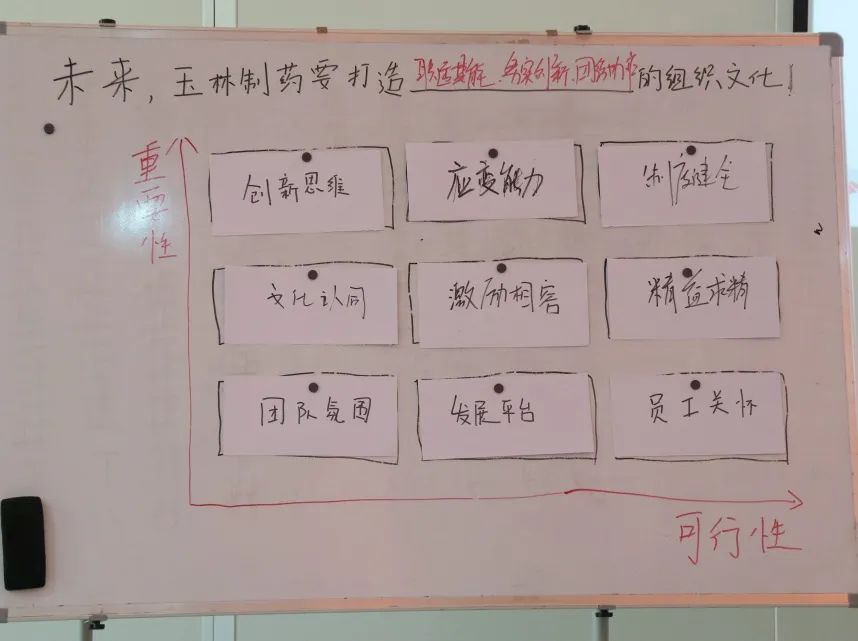 未来，玉林制药要打造 务实创新、团结协作的组织文化！
重要性
创新思维 应变能力 制度健全
文化认同 激励相容 精益求精
团队氛围 发展平台 员工关怀
可行性